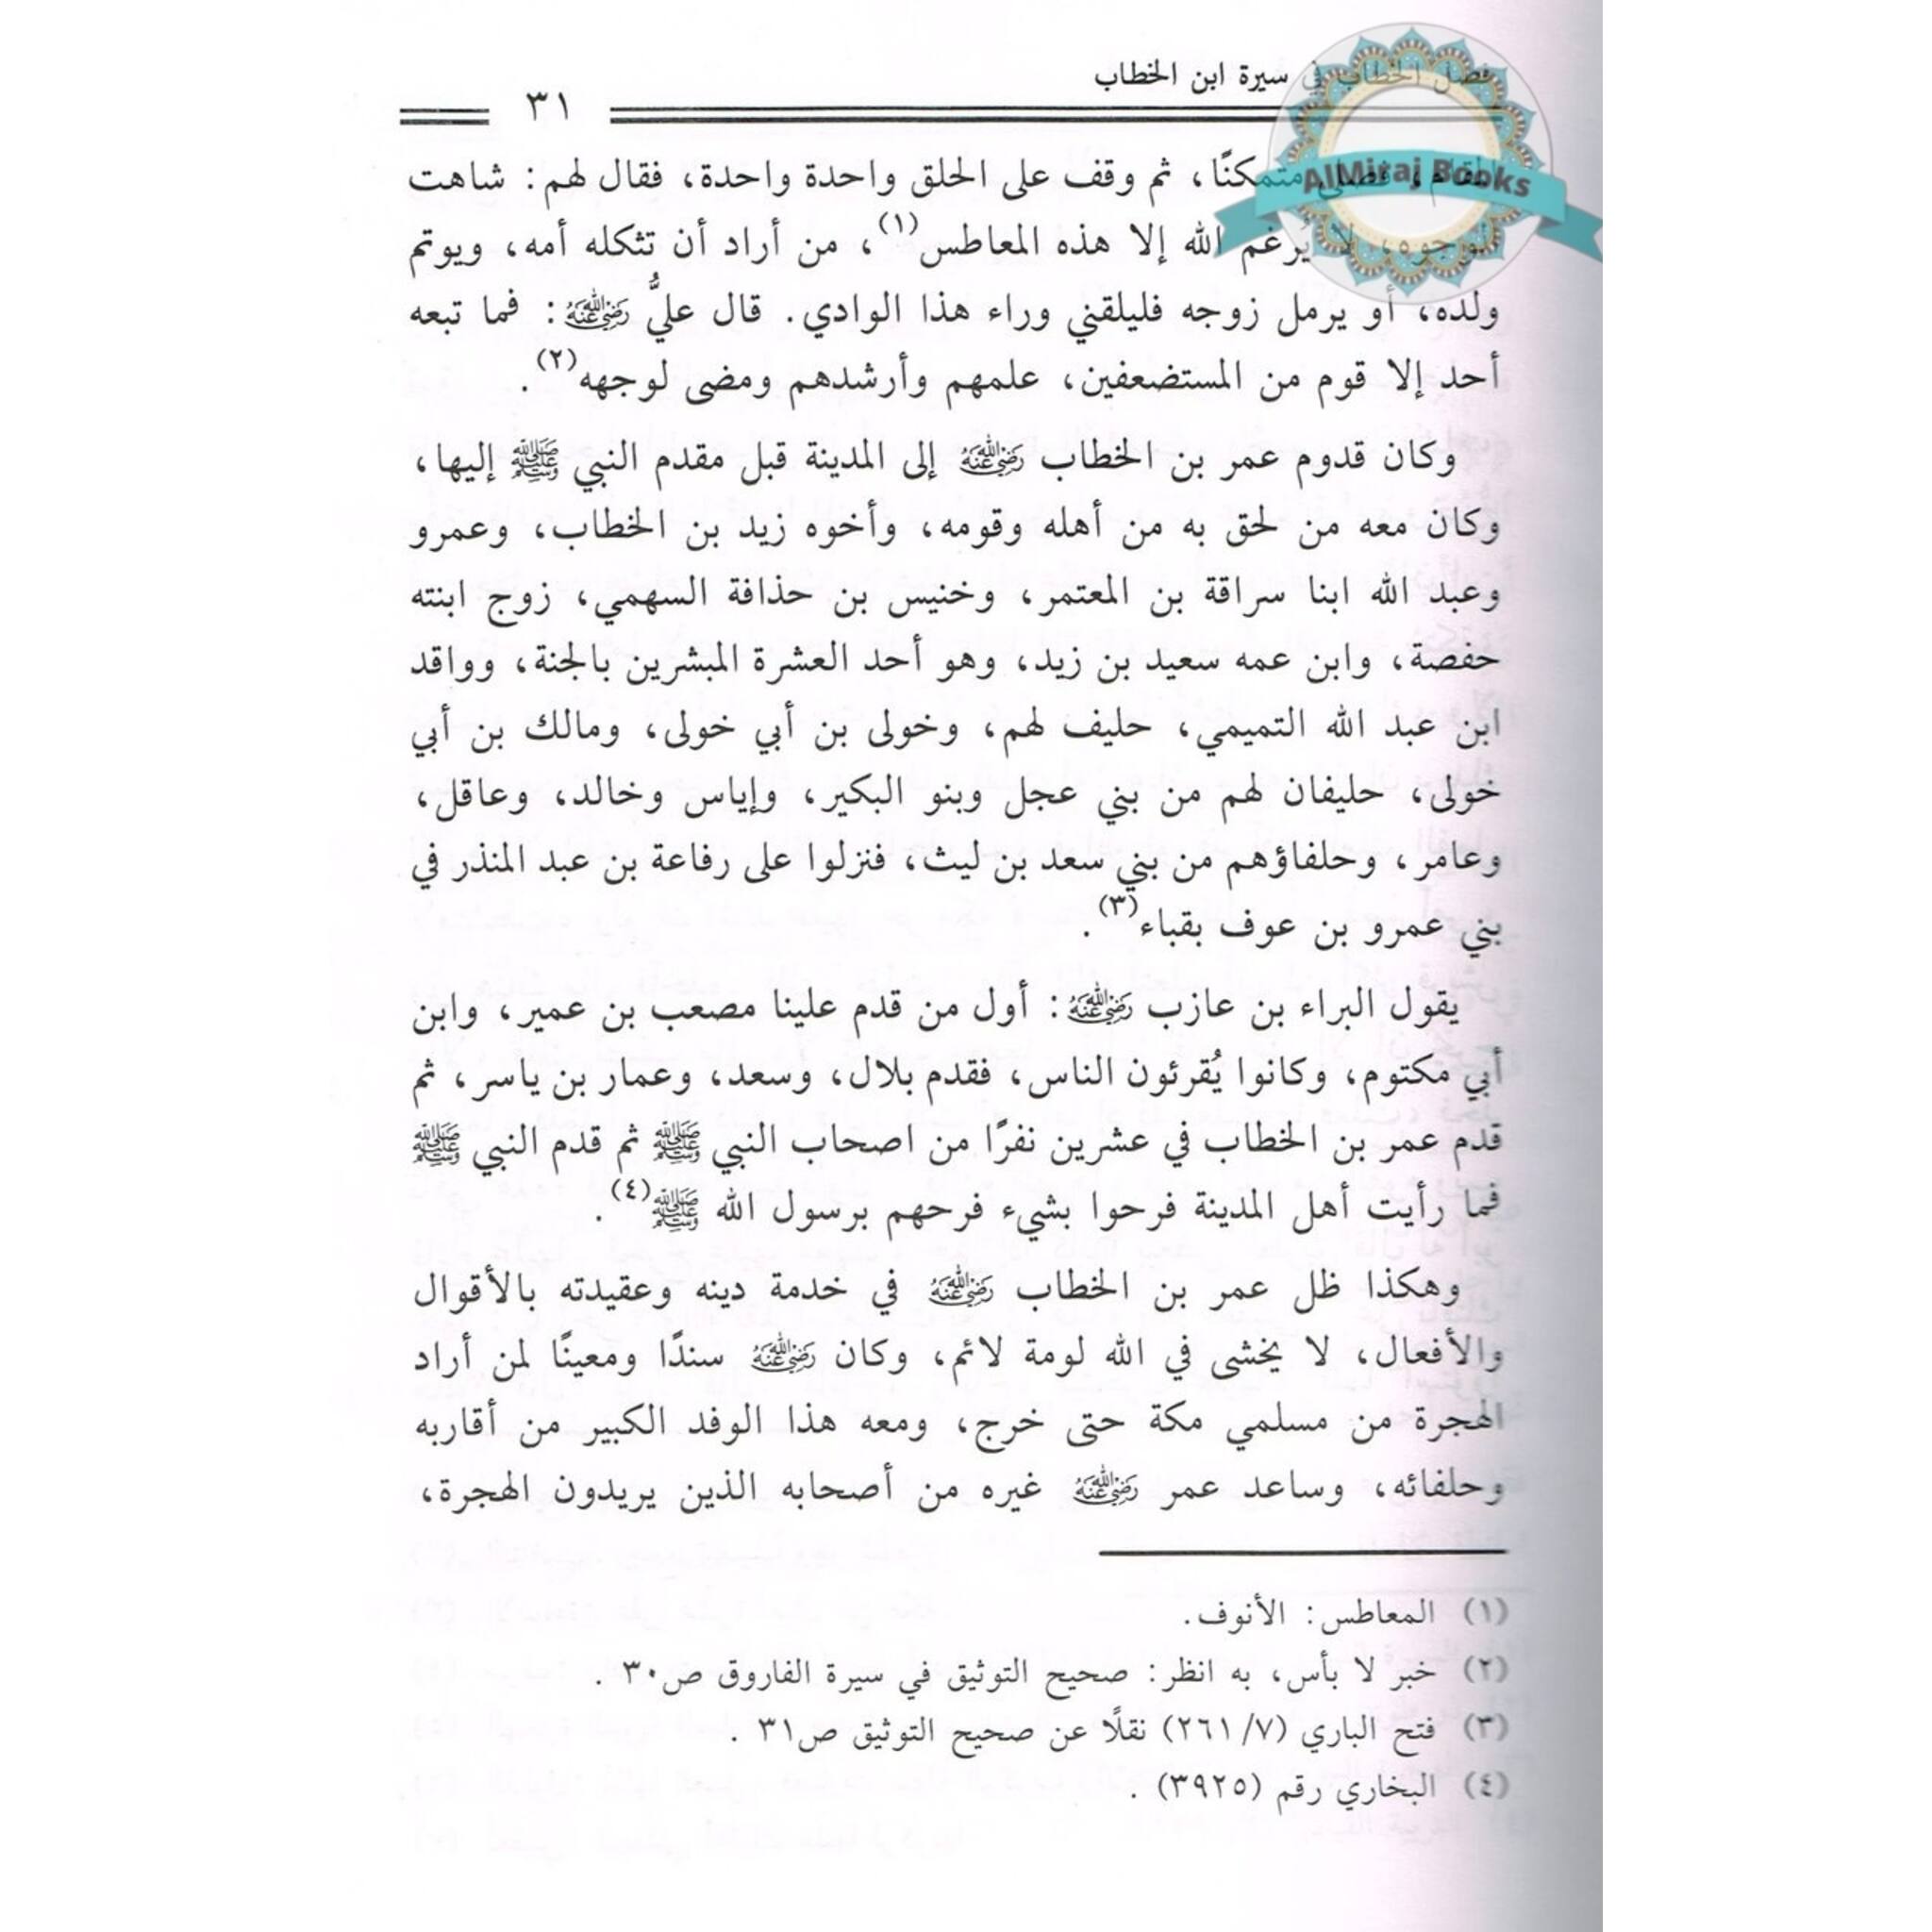 فصل الخطاب في سيرة ابن الخطاب
٣١
AlMiraj Books
متمكنًا، ثم وقف على الحلق واحدة واحدة، فقال لهم: شاهت
الوجوه، لا يُرغم الله إلا هذه المعاطس(١)، من أراد أن تثكله أمه، ويوتم
ولده، أو يرمل زوجه فليلقني وراء هذا الوادي. قال عليٌّ رضي الله عنه: فما تبعه
أحد إلا قوم من المستضعفين، علمهم وأرشدهم ومضى لوجهه(٢).
وكان قدوم عمر بن الخطاب رضي الله عنه إلى المدينة قبل مقدم النبي ﷺ إليها،
وكان معه من لحق به من أهله وقومه، وأخوه زيد بن الخطاب، وعمرو
وعبد الله ابنا سراقة بن المعتمر، وخنيس بن حذافة السهمي، زوج ابنته
حفصة، وابن عمه سعيد بن زيد، وهو أحد العشرة المبشرين بالجنة، وواقد
ابن عبد الله التميمي، حليف لهم، وخولى بن أبي خولى، ومالك بن أبي
خولى، حليفان لهم من بني عجل وبنو البكير، وإياس وخالد، وعاقل،
وعامر، وحلفاؤهم من بني سعد بن ليث، فنزلوا على رفاعة بن عبد المنذر في
بني عمرو بن عوف بقباء(٣).
يقول البراء بن عازب رضي الله عنه: أول من قدم علينا مصعب بن عمير، وابن
أبي مكتوم، وكانوا يُقرئون الناس، فقدم بلال، وسعد، وعمار بن ياسر، ثم
قدم عمر بن الخطاب في عشرين نفرًا من اصحاب النبي ﷺ ثم قدم النبي ﷺ
فما رأيت أهل المدينة فرحوا بشيء فرحهم برسول الله ﷺ(٤).
وهكذا ظل عمر بن الخطاب رضي الله عنه في خدمة دينه وعقيدته بالأقوال
والأفعال، لا يخشى في الله لومة لائم، وكان رضي الله عنه سندًا ومعينًا لمن أراد
الهجرة من مسلمي مكة حتى خرج، ومعه هذا الوفد الكبير من أقاربه
وحلفائه، وساعد عمر رضي الله عنه غيره من أصحابه الذين يريدون الهجرة،
(١) المعاطس: الأنوف.
(٢) خبر لا بأس، به انظر: صحيح التوثيق في سيرة الفاروق ص٣٠ .
(٣) فتح الباري (٧/ ٢٦١) نقلًا عن صحيح التوثيق ص٣١ .
(٤) البخاري رقم (٣٩٢٥) .